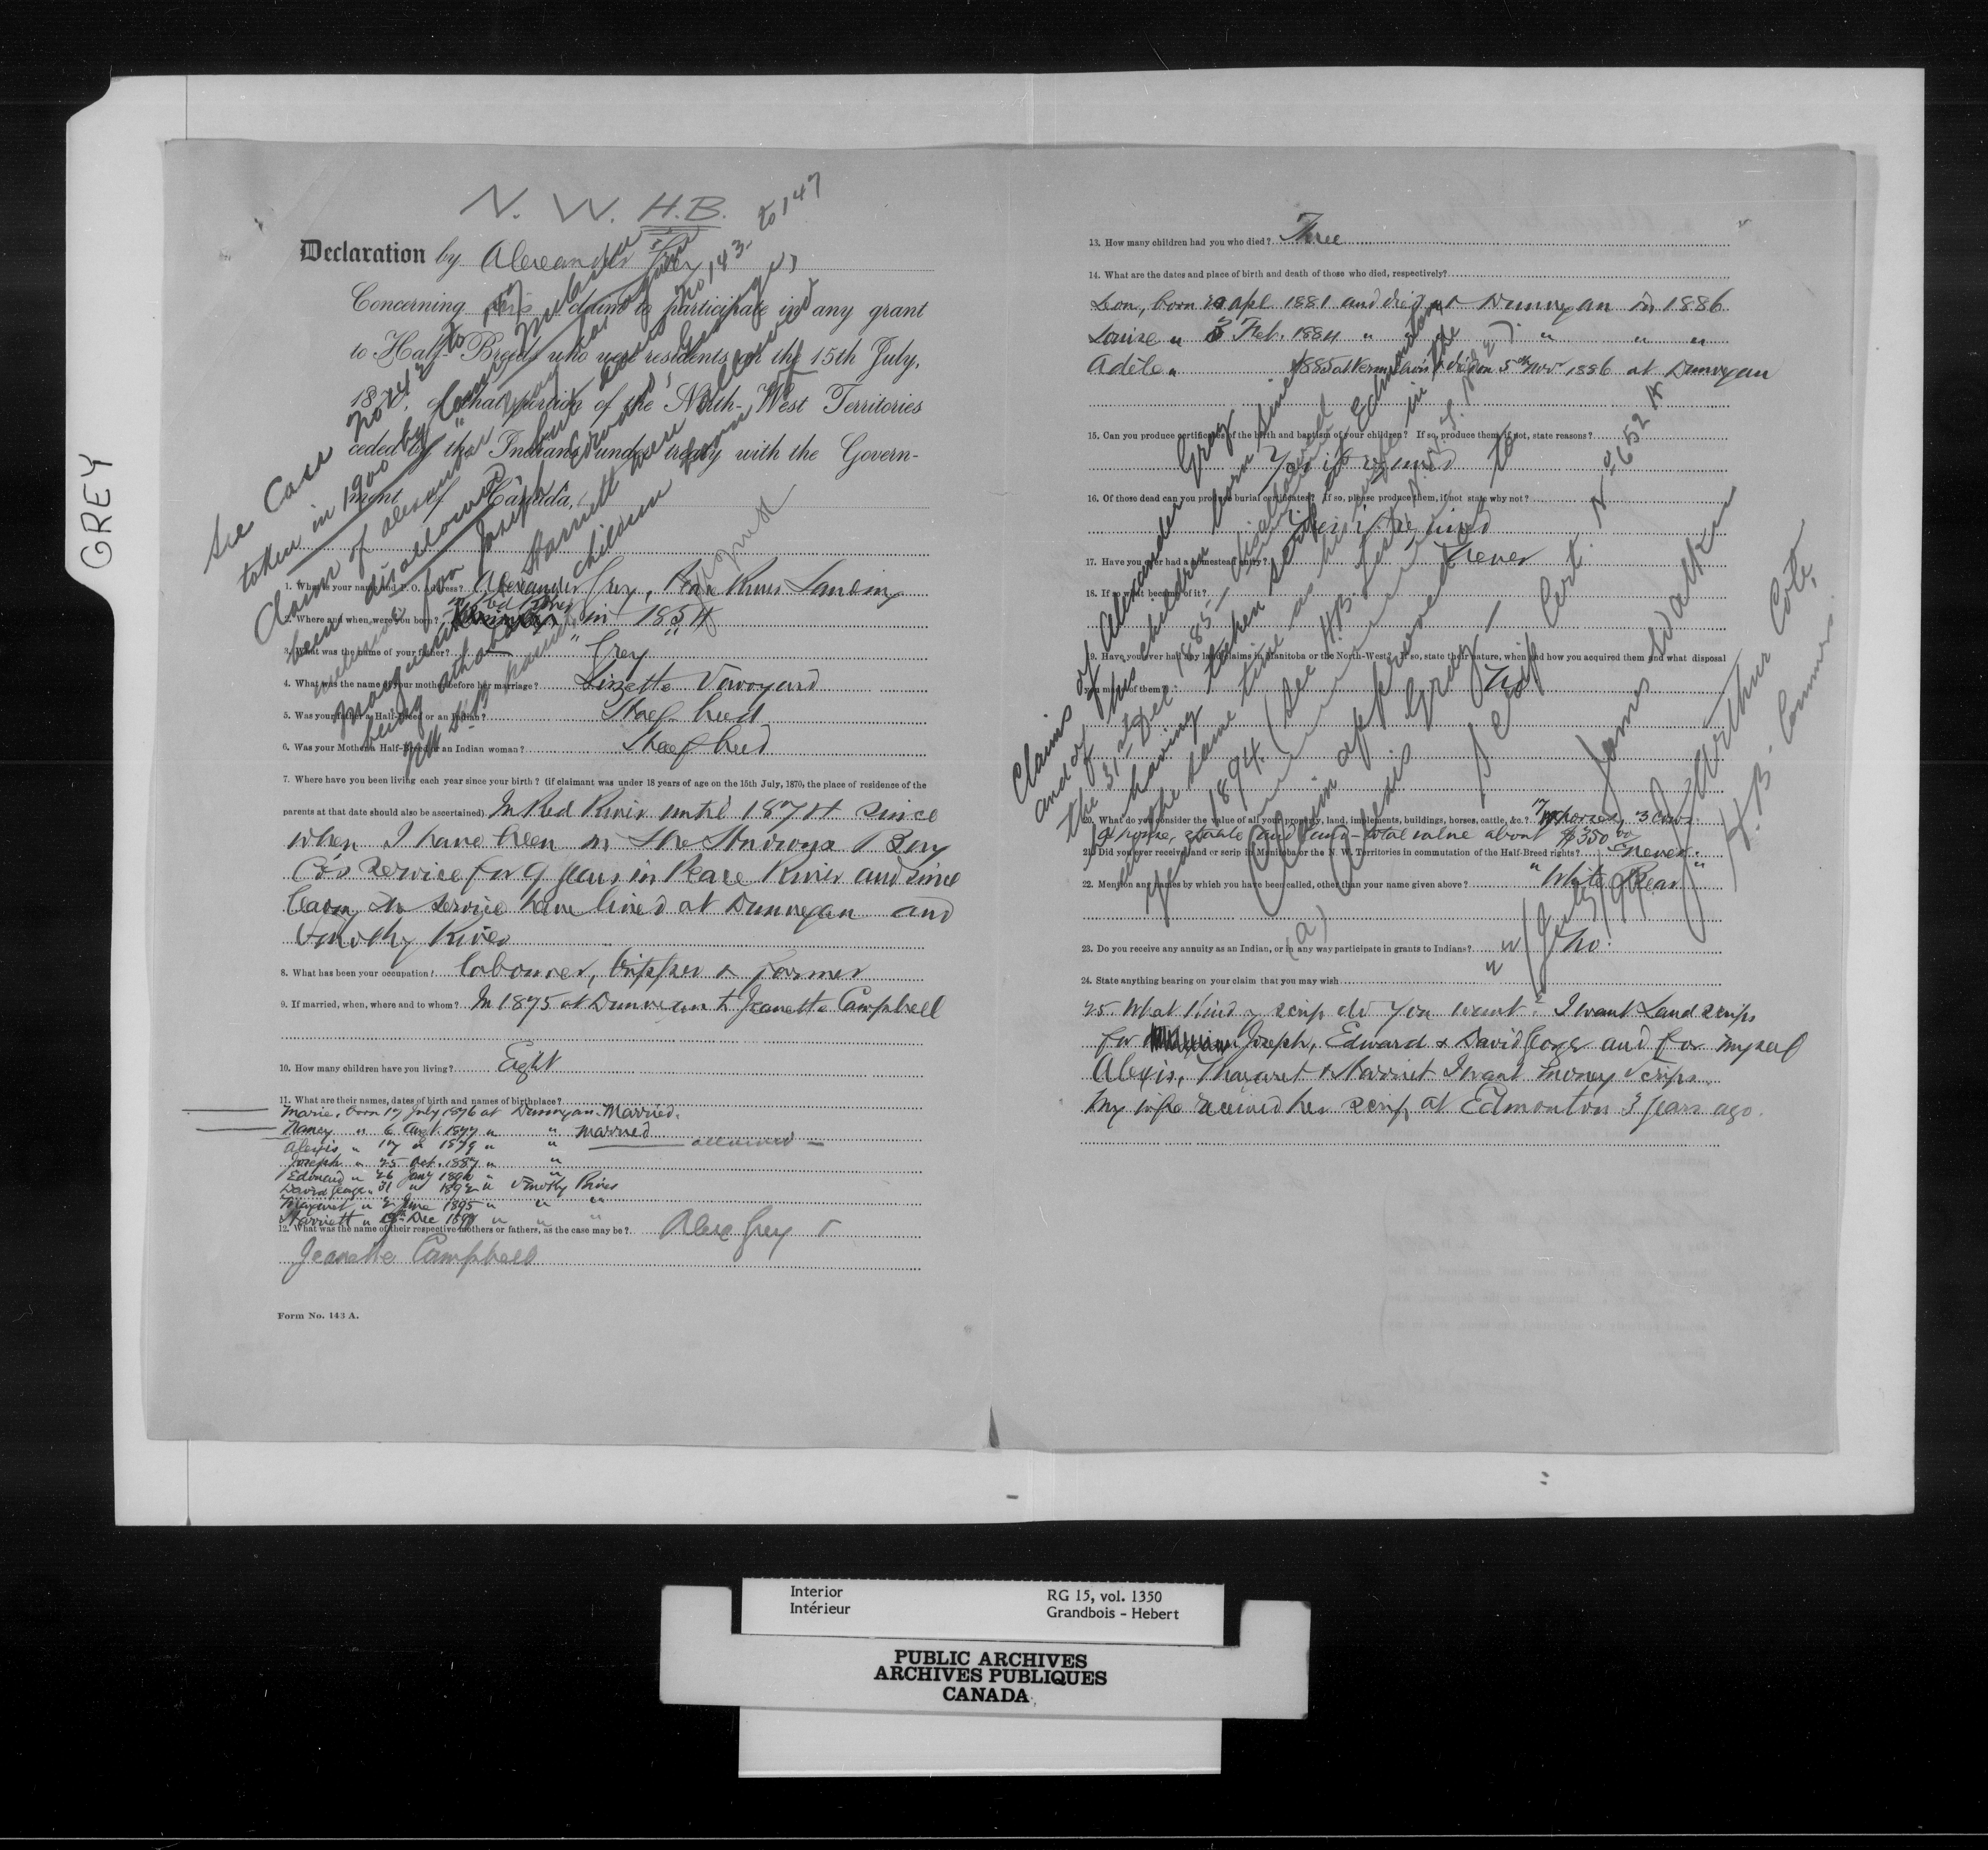 GREY
N. W. H.B.
Declaration by Alexander Grey
Concerning his claim to participate in any grant
to Half-Breeds who were residents on the 15th July,
1870, of that portion of the North-West Territories
ceded by the Indians under treaty with the Govern-
ment of Canada,
See Case No 142 to No 143 to 147
taken in 1900 by
Claim of Alexander Gray
been disallowed
for Joseph, Edward, George,
Margaret Harriett were allowed
being children born
1. What is your name and P. O. Address? Alexander Grey, Peace River Landing
2. Where and when were you born? in Red River in 1854
3. What was the name of your father? " Grey "
4. What was the name of your mother before her marriage? Lizzette
5. Was your father a Half-Breed or an Indian? Half breed
6. Was your Mother a Half-Breed or an Indian woman? Half breed
7. Where have you been living each year since your birth? (if claimant was under 18 years of age on the 15th July, 1870, the place of residence of the
parents at that date should also be ascertained) In Red River until 1874 since
when I have been in the Hudson's Bay
Co's service for 9 years in Peace River and since
leaving the service have lived at Dunvegan and
Smoky River
8. What has been your occupation? labourer, tripper & farmer
9. If married, when, where and to whom? In 1875 at Dunvegan to Jeanette Campbell
10. How many children have you living? Eight
11. What are their names, dates of birth and names of birthplace?
Marie, born 17 July 1876 at Dunvegan. Married.
Nancy " 6 1877 " " married
Alexis " 17 " 1879 " "
Joseph " 25 Oct. 1887 " "
Edward " 26 Jany 1890 " "
David George " 31 " 1892 " Smoky River
Margaret " 2 June 1895 " " "
Harriett " Dec " " "
12. What was the name of their respective mothers or fathers, as the case may be? Alex Grey &
Jeanette Campbell
Form No. 143 A.
13. How many children had you who died? Three
14. What are the dates and place of birth and death of those who died, respectively?
Leon, born Apl 1881 and died at Dunvegan in 1886
Louise " 3 Feb. 1884 " " " " "
Adèle " 1885 at Vermilion & died on 5th Nov 1886 at Dunvegan
15. Can you produce certificates of the birth and baptism of your children? If so, produce them, if not, state reasons?
Yes if required
16. Of those dead can you produce burial certificates? If so, please produce them, if not state why not?
Yes if required
17. Have you ever had a homestead entry? Never
18. If so what became of it?
19. Have you ever had any land claims in Manitoba or the North-West? If so, state their nature, when and how you acquired them and what disposal
you made of them? No
20. What do you consider the value of all your property, land, implements, buildings, horses, cattle, &c.? 17 horses, 3 cows
a house, stable and land - total value about $350.00
21. Did you ever receive land or scrip in Manitoba or the N. W. Territories in commutation of the Half-Breed rights? never.
22. Mention any names by which you have been called, other than your name given above? "White Bear"
23. Do you receive any annuity as an Indian, or in any way participate in grants to Indians? No.
24. State anything bearing on your claim that you may wish
25. What kind of scrip do you want? I want Land scrip
for Joseph, Edward & David George and for myself
Alexis, Margaret & Harriet I want money scrip.
My wife received her scrip at Edmonton 3 years ago.
Claims of Alexander Gray
and of his children born since
the 31st Dec 1885 - disallowed
having taken scrip at Edmonton
at the same time as his wife in the
year 1894. (See H.B. List, N.W.T. No 2).
Claim approved as to
Alexis Gray -
Scrip Cert. No 652 A
James Walker
J. Arthur Coté,
H.B. Commrs.
Interior
Intérieur
RG 15, vol. 1350
Grandbois - Hebert
PUBLIC ARCHIVES
ARCHIVES PUBLIQUES
CANADA